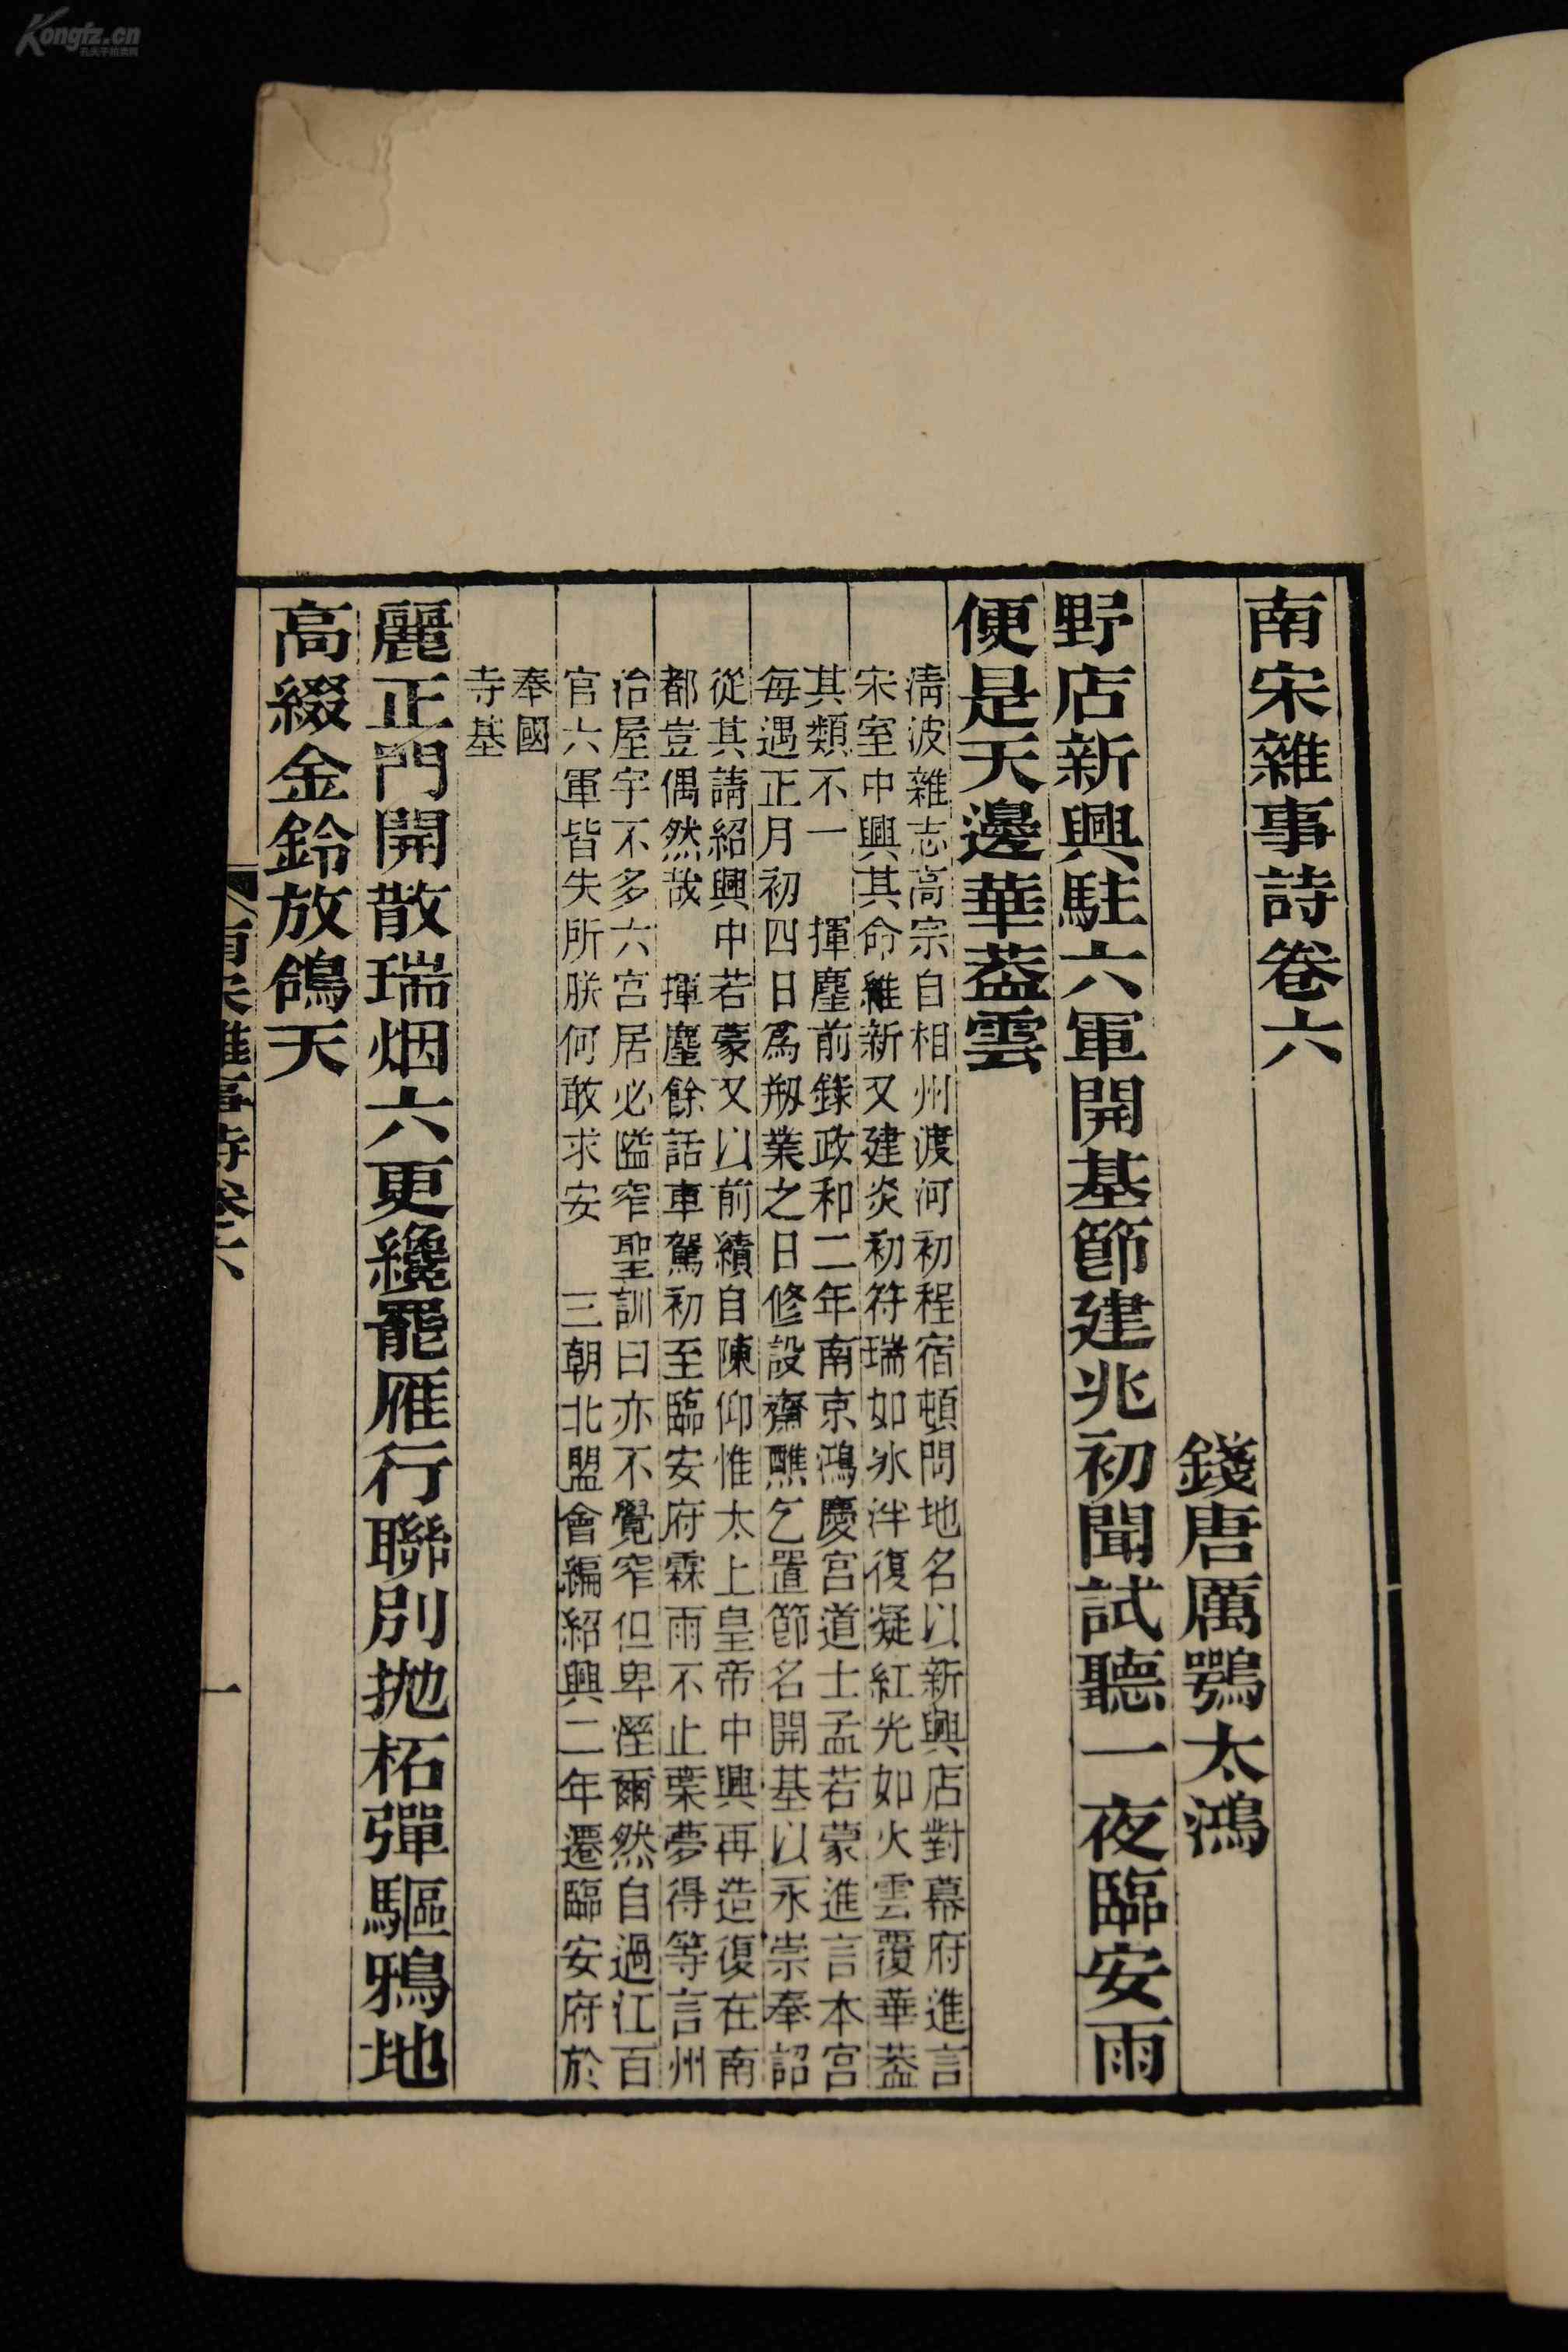 南宋雜事詩卷六
錢唐厲鶚太鴻
野店新興駐六軍開基節建兆初聞試聽一夜臨安雨
便是天邊華葢雲
淸波雜志高宗自相州渡河初程宿頓問地名以新興店對幕府進言
宋室中興其命維新又建炎初符瑞如氷泮復凝紅光如火雲覆華葢
其類不一　揮麈前錄政和二年南京鴻慶宮道士孟若蒙進言本宮
每遇正月初四日爲剏業之日修設齋醮乞置節名開基以永崇奉詔
從其請紹興中若蒙又以前績自陳仰惟太上皇帝中興再造復在南
都豈偶然哉　揮麈餘話車駕初至臨安府霖雨不止葉夢得等言州
治屋宇不多六宮居必隘窄聖訓曰亦不覺窄但卑溼爾然自過江百
官六軍皆失所朕何敢求安　三朝北盟會編紹興二年遷臨安府於
奉國
寺基
麗正門開散瑞烟六更纔罷雁行聯別拋柘彈驅鴉地
高綴金鈴放鴿天
南宋雜事詩卷六
一
Kongfz.cn